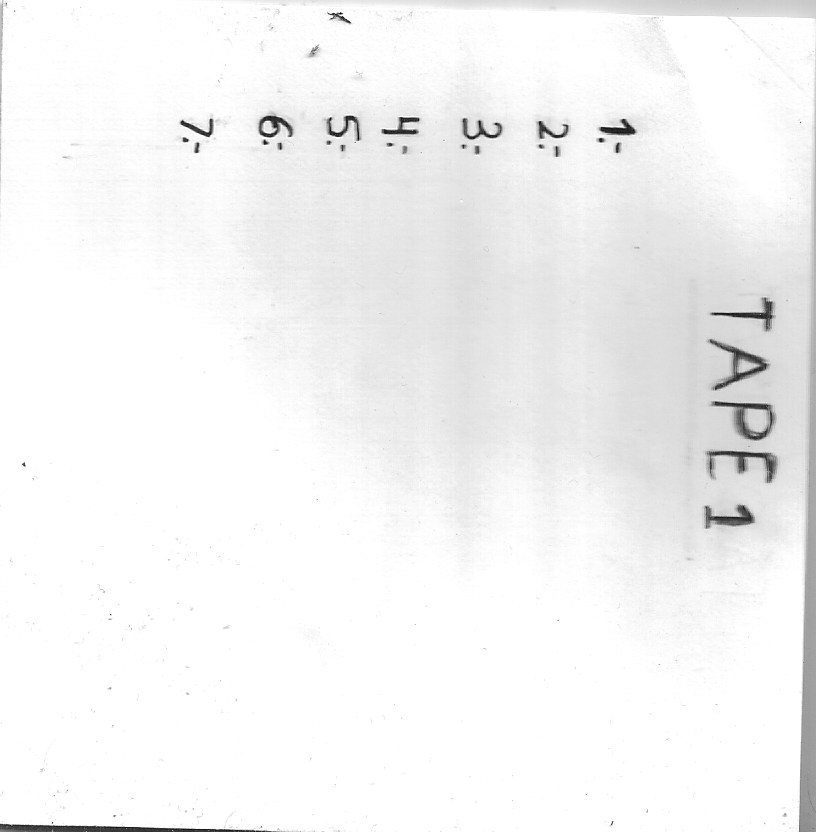 TAPE 1
1:-
2:-
3:-
4:-
5:-
6:-
7:-